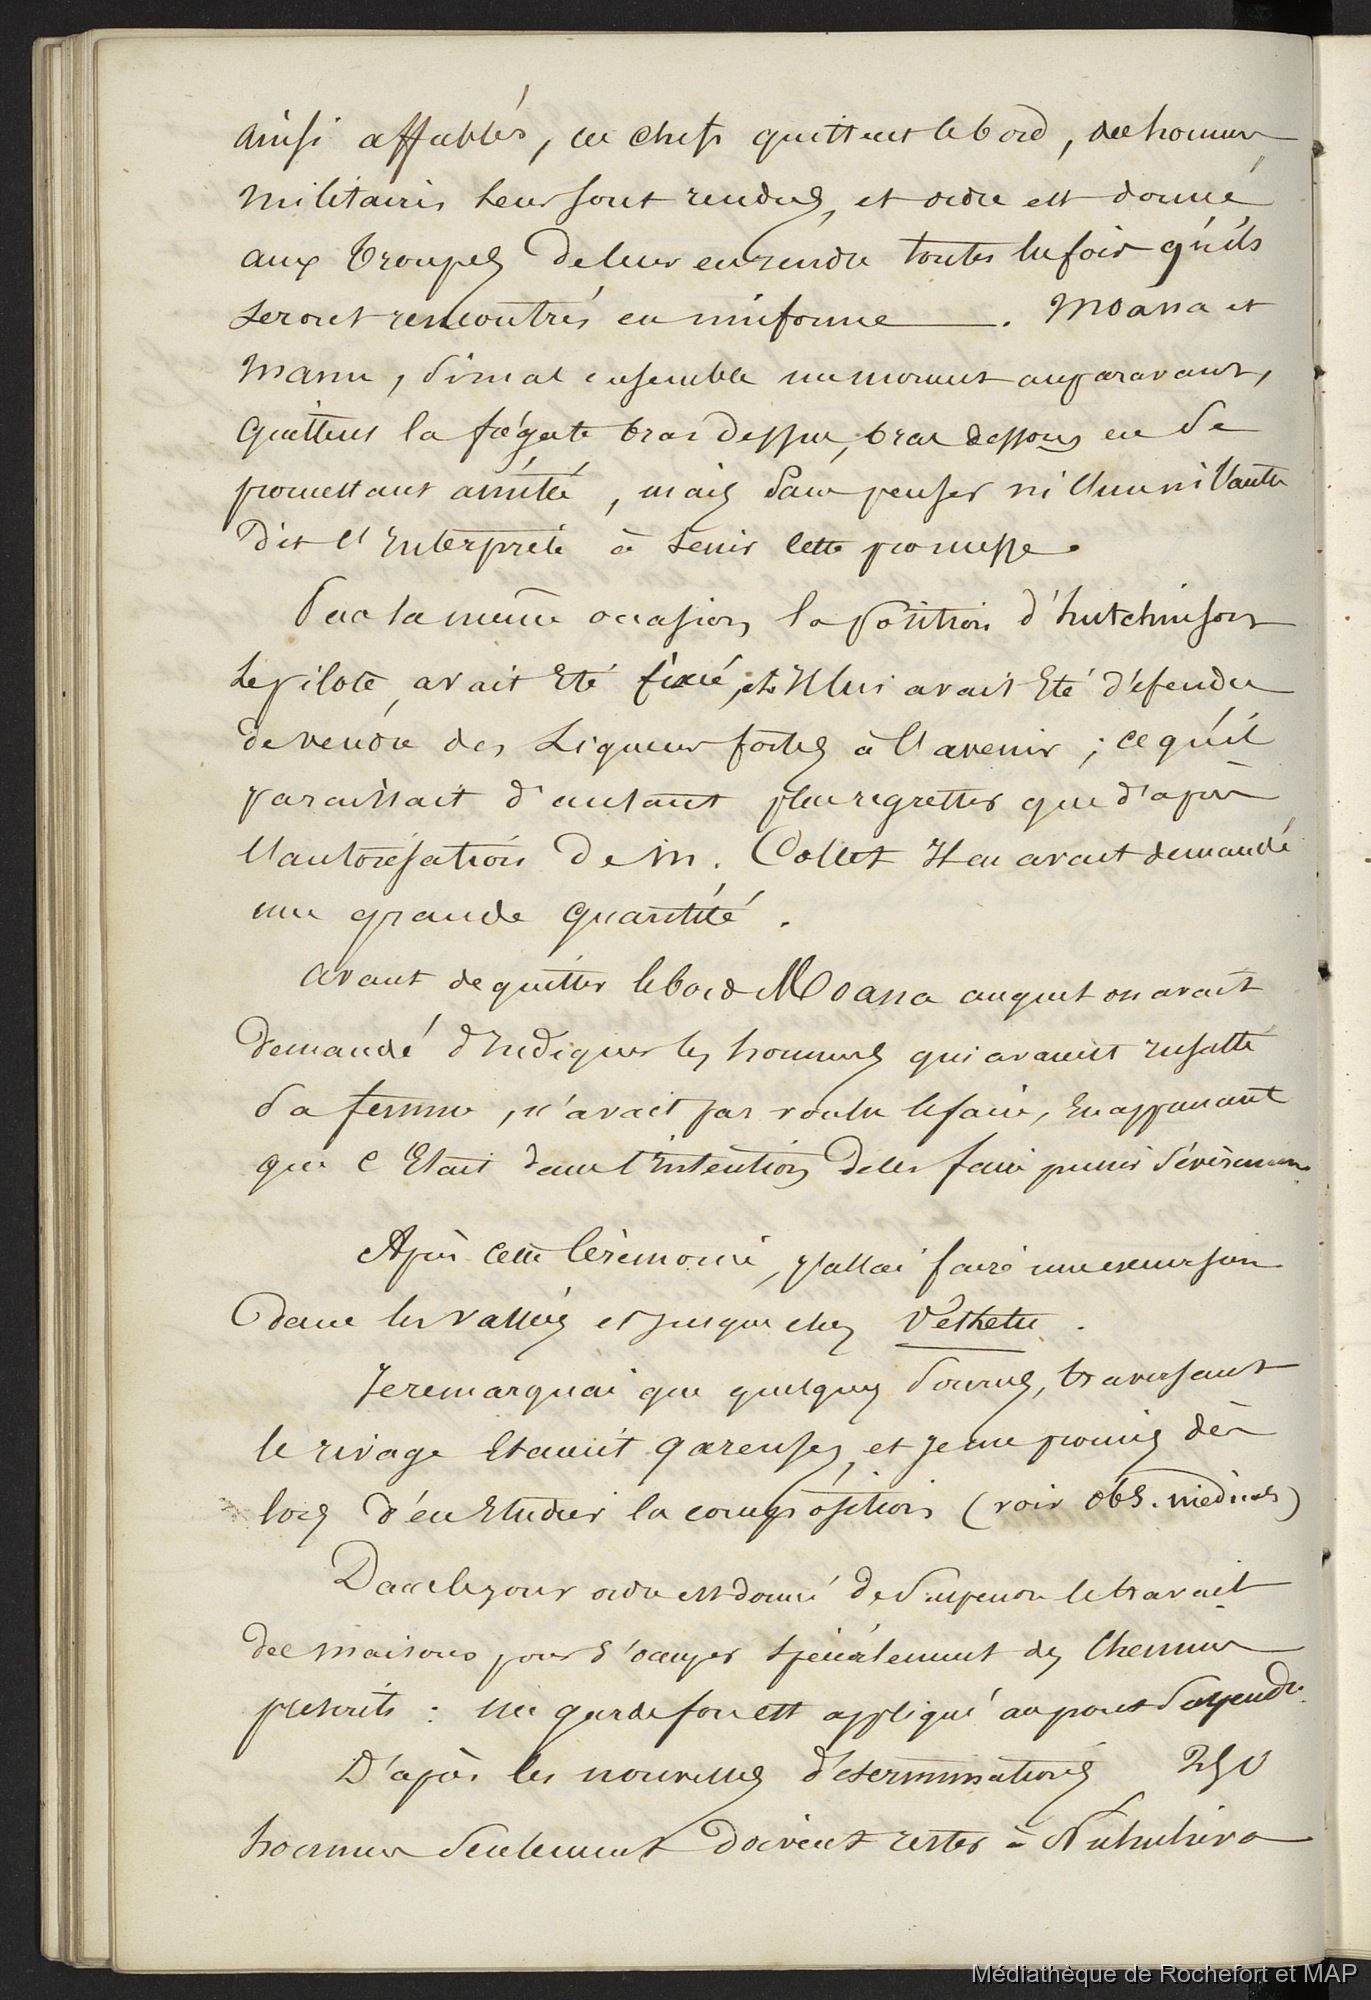 ainsi affublés, ces chefs quittent le bord, des honneurs
militaires leur sont rendus, et ordre est donné
aux troupes de leur en rendre toutes les fois qu'ils
seront rencontrés en uniforme. Moana et
manu, si mal ensemble un moment auparavant,
quittent la frégate bras dessus, bras dessous en se
promettant amitié, mais sans penser ni l'un ni l'autre
dit l'interprète à tenir cette promesse.
Par la même occasion la position d'hutchinson
le pilote avait été fixée, et il lui avait été défendu
de vendre des liqueurs fortes à l'avenir ; ce qu'il
paraissait d'autant plus regretter que d'après
l'autorisation de m. Collet il en avait demandé
une grande quantité.
avant de quitter le bord Moana auquel on avait
demandé d'indiquer les hommes qui avaient insulté
sa femme, n'avait pas voulu le faire, en apprenant
que c'était dans l'intention de les faire punir sévèremen
Après cette cérémonie, j'allai faire une excursion
dans les vallées et jusques chez Véthetu.
Je remarquai que quelques sources, traversant
le rivage étaient gazeuses, et je me promis dès
lors d'en étudier la composition (voir obs. médicales)
Dans le jour ordre est donné de suspendre le travail
des maisons pour s'occuper spécialement des chemins
prescrits : un garde fou est appliqué au pont suspendu.
D'après les nouvelles déterminations 250
hommes seulement doivent rester à Nukuhiva
Médiathèque de Rochefort et MAP